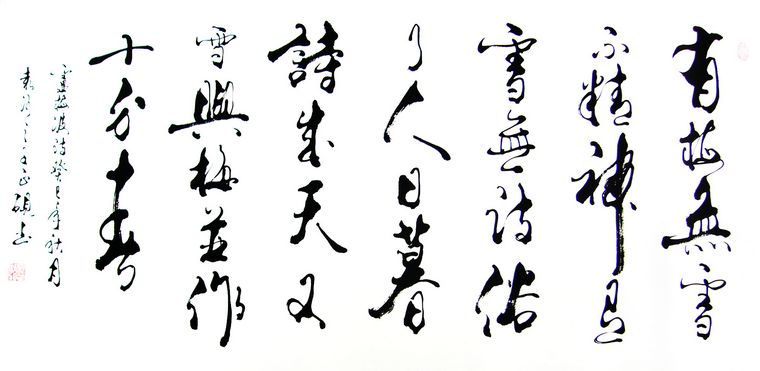 有梅無雪
不精神有
雪無詩俗
了人日暮
詩成天又
雪與梅並作
十分春
盧梅坡詩癸巳年秋月